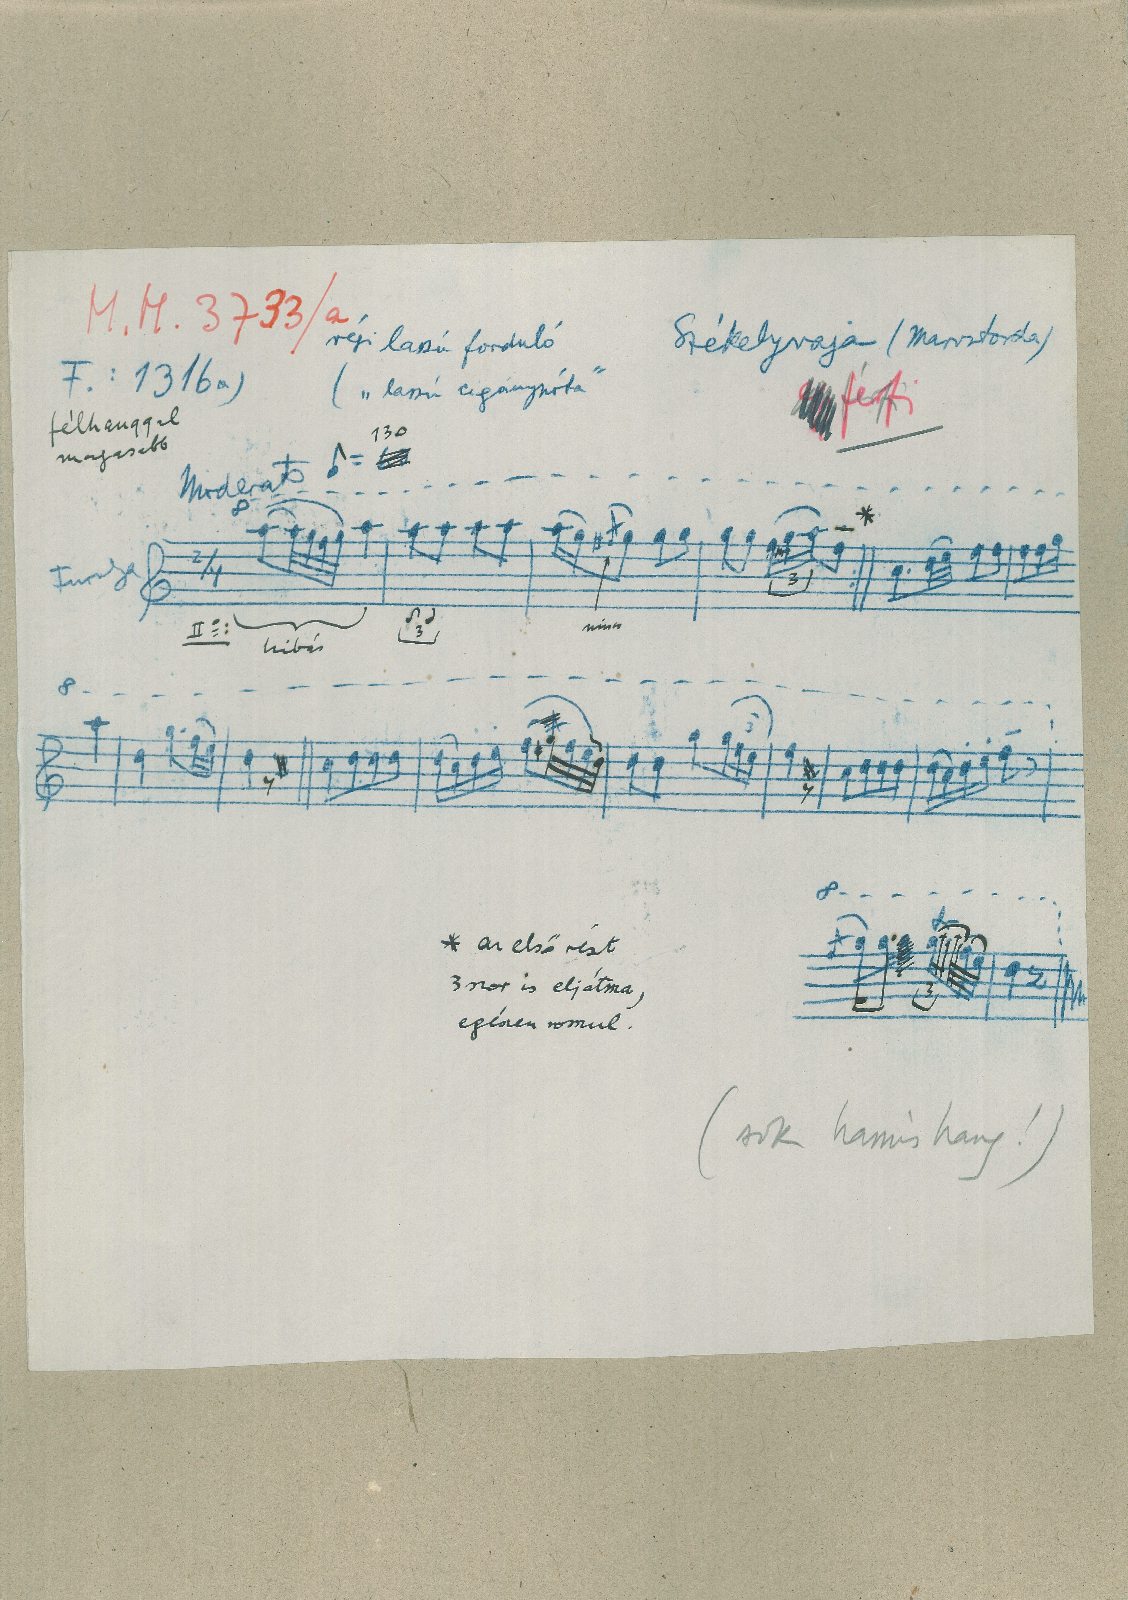 M.M. 3733/a
régi lassú forduló
Székelyvaja (Marostorda)
F.: 1316a)
("lassú cigánynóta"
félhanggal
magasabb
férfi
Moderato ♪= 130
8
Furulya 2/4
*
3
II =: hibás
3
nincs
8
3
8
3
* az első részt
3szor is eljátsza,
egészen rosszul.
(sok hamis hang!)